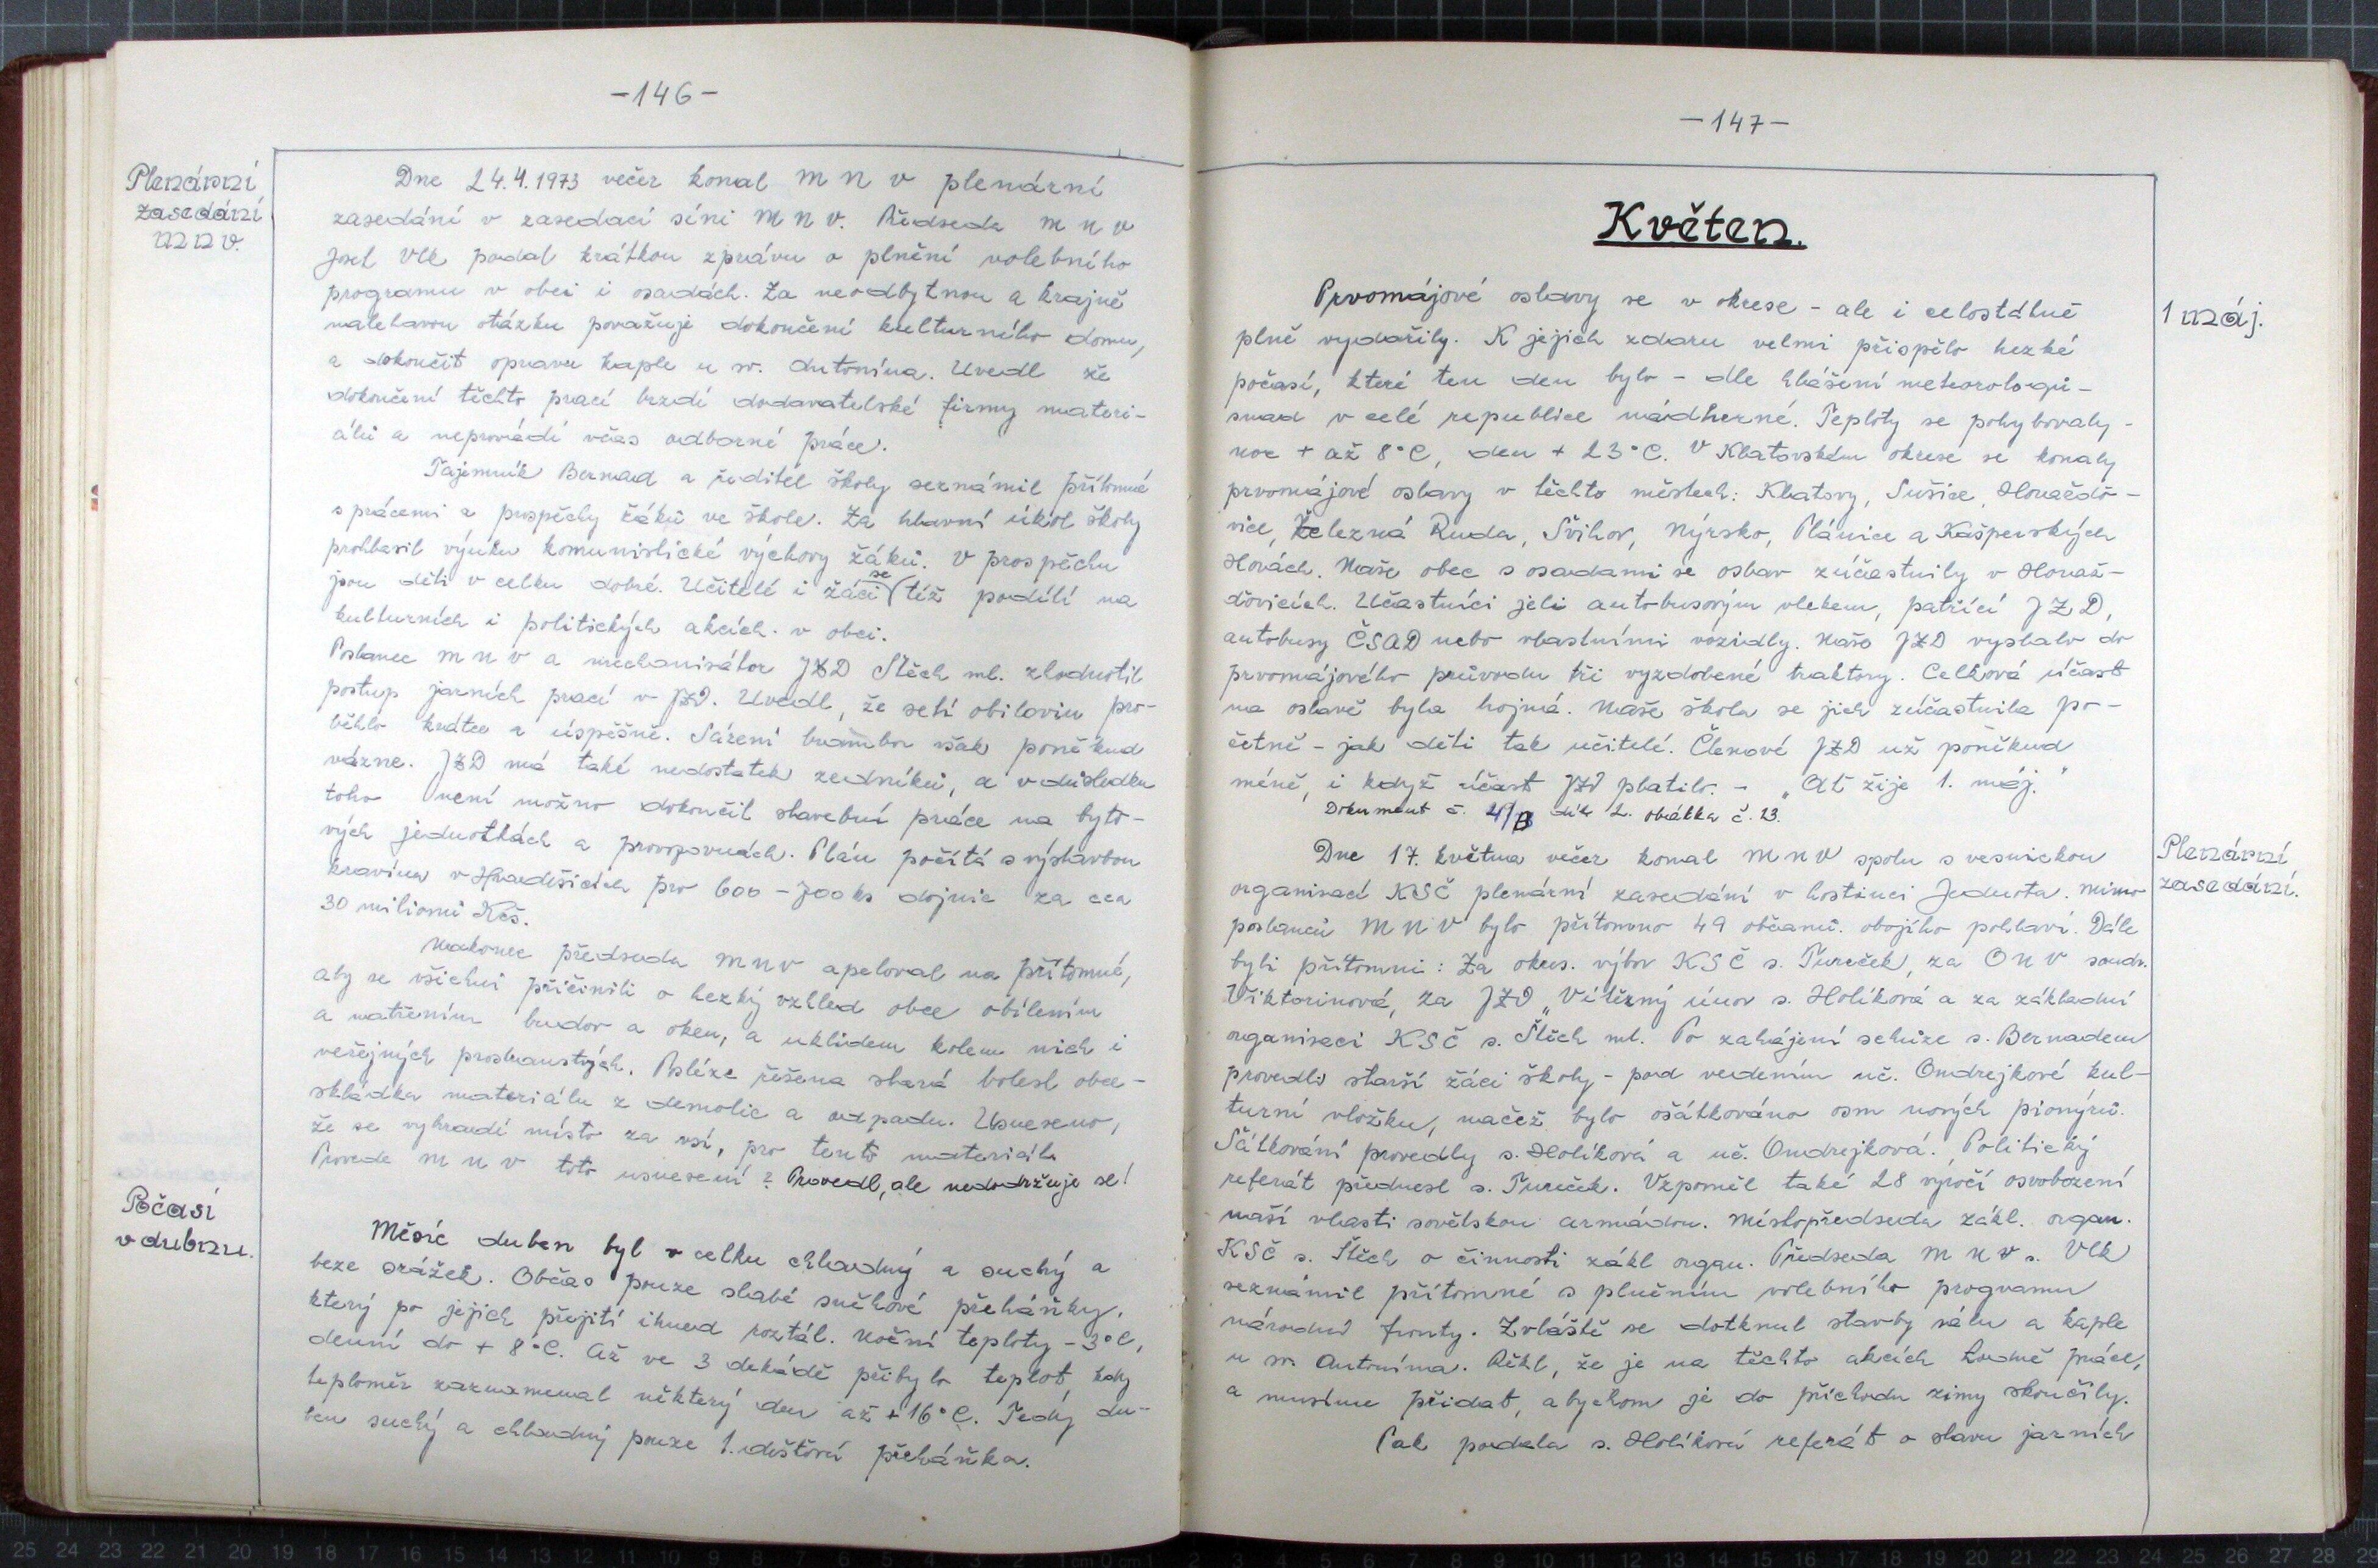 -146-
Plenární
zasedání
MNV.
Dne 24.4.1973 večer konal MNV plenární
zasedání v zasedací síni MNV. Předseda MNV
Josef Vlk podal krátkou zprávu o plnění volebního
programu v obci i osadách. Za neodbytnou a krajně
naléhavou otázku považuje dokončení kulturního domu,
a dokončit opravu kaple u sv. Antonína. Uvedl že
dokončení těchto prací brzdí dodavatelské firmy materi-
álu a neprovádí včas odborné práce.
Tajemník Bernad a ředitel školy seznámil přítomné
s prácemi a prospěchy žáků ve škole. Za hlavní úkol školy
prohlásil výuku komunistické výchovy žáků. V prospěchu
jsou děti v celku dobré. Učitelé i žáci se též podílí na
kulturních i politických akcích v obci.
Poslanec MNV a mechanisátor JZD Štěch ml. zhodnotil
postup jarních prací v JZD. Uvedl, že setí obilovin pro-
běhlo krátce a úspěšně. Sázení brambor však poněkud
vázne. JZD má také nedostatek zedníků, a v důsledku
toho není možno dokončit stavební práce na byto-
vých jednotkách a provozovnách. Plán počítá s výstavbou
kravína v Hradešicích pro 600-700 ks dojnic za cca
30 milionů Kčs.
Nakonec předseda MNV apeloval na přítomné,
aby se všichni přičinili o hezký vzhled obce obílením
a natřením budov a oken, a uklidem kolem nich i
veřejných prostranstvých. Posléze řešena stará bolest obce -
skládka materiálu z demolic a odpadu. Usneseno,
že se vyhradí místo za vsí, pro tento materiál.
Provede MNV toto usnesení? Provedl, ale nedodržuje se!
Počasí
v dubnu.
Měsíc duben byl v celku chladný a suchý a
beze srážek. Občas pouze slabé sněhové přeháňky,
který po jejich přejití ihned roztál. Noční teploty -3°C,
denní do +8°C. Až ve 3 dekádě přibylo teplot, kdy
teploměr zaznamenal některý den až +16°C. Tedy du-
ben suchý a chladný pouze 1. dešťová přeháňka.
-147-
Květen.
1 máj.
Prvomájové oslavy se v okrese - ale i celostátně
plně vydařily. K jejich zdaru velmi přispělo hezké
počasí, které ten den bylo - dle hlášení meteorologů -
snad v celé republice nádherné. Teploty se pohybovaly -
noc + až 8°C, den + 23°C. V Klatovském okrese se konaly
prvomájové oslavy v těchto městech: Klatovy, Sušice, Horažďo-
vice, Železná Ruda, Švihov, Nýrsko, Plánice a Kašperských
Horách. Naše obec s osadami se oslav zúčastnily v Horaž-
ďovicích. Učastníci jeli autobusovým vlekem, patřící JZD,
autobusy ČSAD nebo vlastními vozidly. Naše JZD vyslalo do
prvomájového průvodu tři vyzdobené traktory. Celková účast
na oslavě byla hojná. Naše škola se jich zúčastnila po-
četně - jak děti tak učitelé. Členové JZD už poněkud
méně, i když účast JZD platilo. - „Ať žije 1. máj."
Dokument č. 4/B díl 2. obálka č. 23.
Plenární
zasedání.
Dne 17. května večer konal MNV spolu s vesnickou
organisací KSČ plenární zasedání v hostinci Jednota. Mimo
poslanců MNV bylo přítomno 49 občanů obojího pohlaví. Dále
byli přítomni: Za okres. výbor KSČ s. Tureček, za ONV soudr.
Viktorinová, za JZD „Vítězný únor s. Holíková a za základní
organisaci KSČ s. Štěch ml. Po zahájení schůze s. Bernadem
provedli starší žáci školy - pod vedením uč. Ondrejkové kul-
turní vložku, načež bylo ošátkováno osm nových pionýrů.
Šátkování provedly s. Holíková a uč. Ondrejková. Politický
referát přednesl s. Tureček. Vzpoměl také 28 výročí osvobození
naší vlasti sovětskou armádou. Místopředseda zákl. organ.
KSČ s. Štěch o činnosti zákl organ. Předseda MNV s. Vlk
seznámil přítomné s plněním volebního programu
národní fronty. Zvláště se dotknul stavby sálu a kaple
u sv. Antonína. Řekl, že je na těchto akcích hodně práce,
a musíme přidat, abychom je do příchodu zimy skončily.
Pak podala s. Holíková referát o stavu jarních